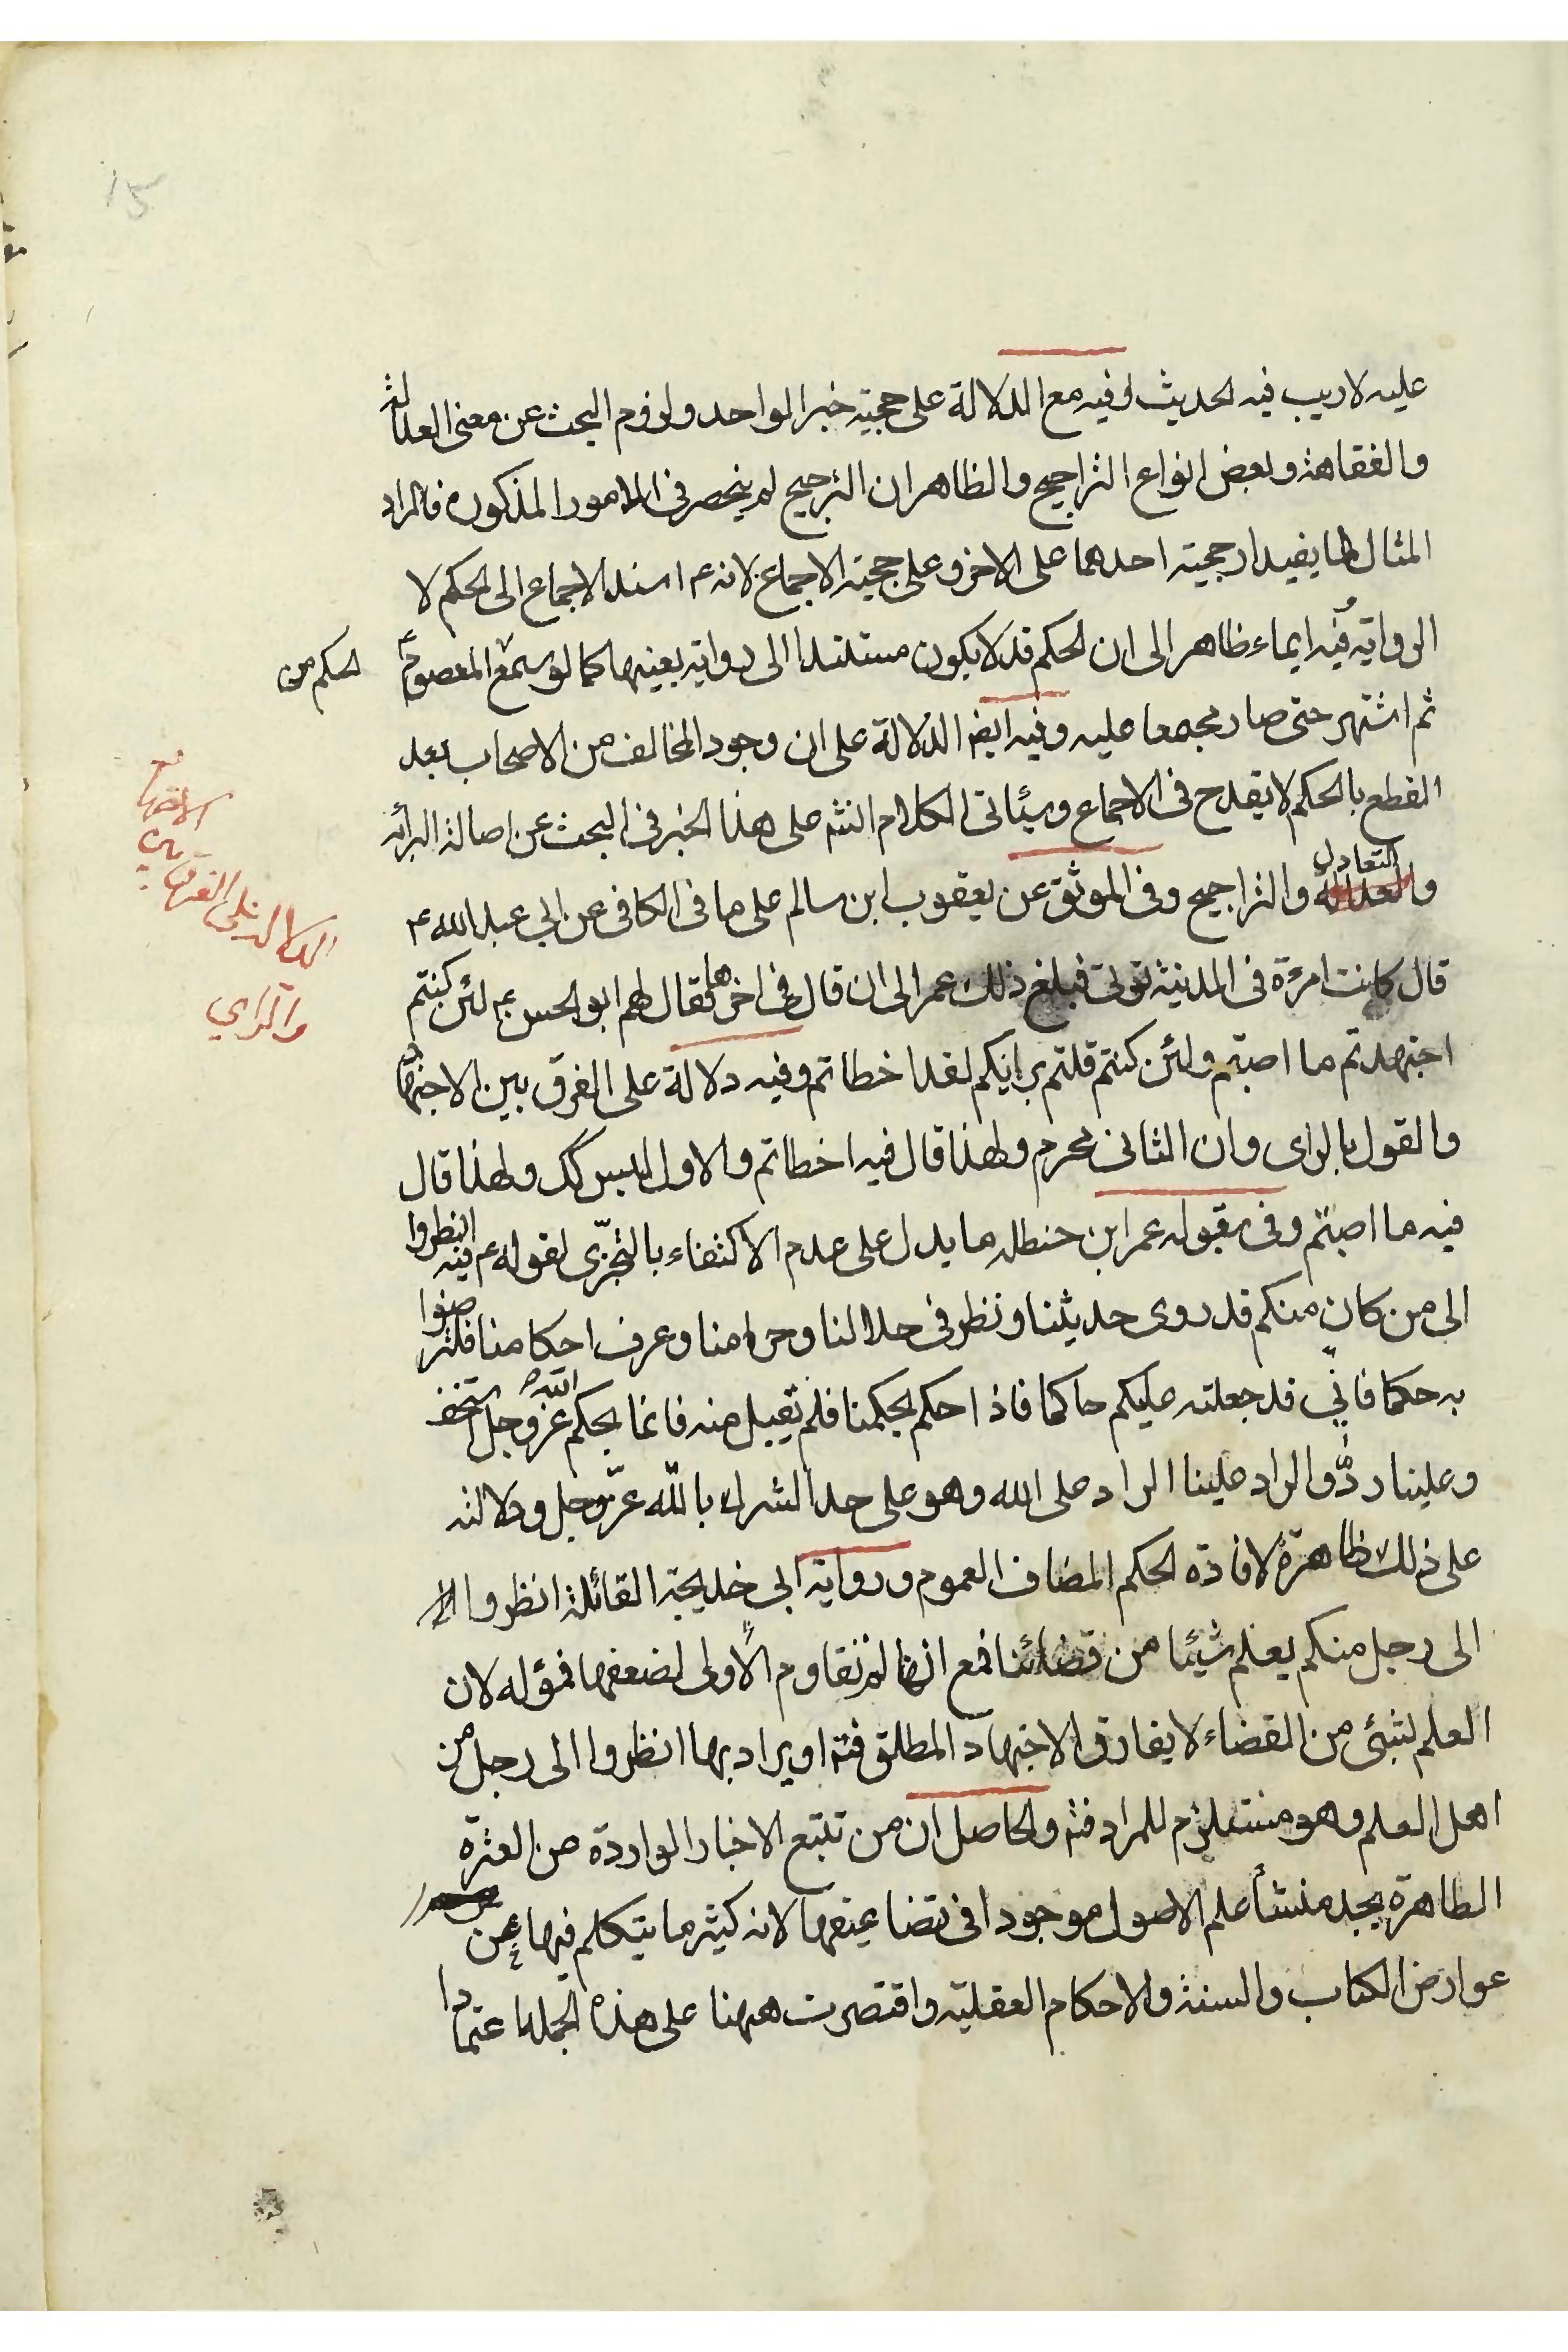 عليه لا ريب فيه الحديث وفيه مع الدلالة على حجية خبر الواحد ولزوم البحث عن معنى العدالة
والفقاهة وبعض انواع التراجيح والظاهر ان الترجيح لم ينحصر في الامور المذكورة فالمراد
المثال لما يفيد ارجحية احدهما على الاخر وعلى حجية الاجماع لانه ع اسند الاجماع الى الحكم لا
الرواية وفيه ايماء ظاهر الى ان الحكم قد لا يكون مستندا الى رواية بعينها كما لو سمع المعصوم ع
الحكم من
ثم اشتهر حتى صار مجمعا عليه وفيه ايض الدلالة على ان وجود المخالف من الاصحاب بعد
القطع بالحكم لا يقدح في الاجماع وسيئاتي الكلام انشه على هذا الخبر في البحث عن اصالة البرائه
والتعادل والتراجيح وفي الموثق عن يعقوب ابن سالم على ما في الكافي عن ابي عبد الله ع
قال كانت امرءة في المدينة تؤتى فبلغ ذلك عمر الى ان قال في اخرها فقال لهم ابو الحسن ع لئن كنتم
اجتهدتم ما اصبتم ولئن كنتم قلتم برايكم لقد اخطاتم وفيه دلالة على الفرق بين الاجتهاد
والقول بالراى وان الثانى محرم ولهذا قال فيه اخطاتم والاول ليس كك ولهذا قال
فيه ما اصبتم وفى مقبوله عمر ابن حنطله ما يدل على عدم الاكتفاء بالتجزى لقوله ع فيه انظروا
الى من كان منكم قد روى حديثنا ونظر في حلالنا وحرامنا وعرف احكامنا فلترضوا
به حكما فاني قد جعلته عليكم حاكما فاذا حكم بحكمنا فلم يقبل منه فانما بحكم الله عز وجل استخف
وعلينا ردّ والراد علينا الراد على الله وهو على حد الشرك بالله عزّ وجل ودلالته
على ذلك ظاهرة لافادة الحكم المضاف العموم ورواية ابى خديجة القائلة انظروا
الى رجل منكم يعلم شيئا من قضائنا فمع انها لم تقاوم الاولى لضعفها فمؤله لان
العلم بشئ من القضاء لا يفارق الاجتهاد المطلق فتم او يراد بها انظروا الى رجل من
اهل العلم وهو مستلزم للمراد فتم والحاصل ان من تتبع الاخبار الواردة من العترة
الطاهرة يجد منشأ علم الاصول موجودا في تضاعيفها لانه كثيرما يتكلم فيها عن
عوارض الكتاب والسنة والاحكام العقلية واقتصرت ههنا على هذه الجمله اعتمادا
الدلالة على الفرق بين
الاجتهاد
والراي